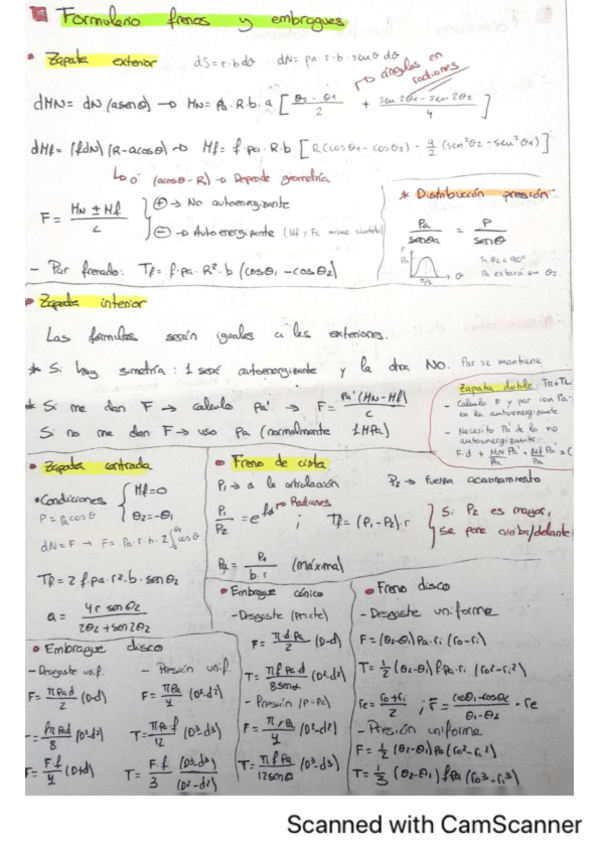 Formulario frenos y embragues
• Zapata exterior dS=r·b·dθ dN= pa·r·b·senθ dθ
→ ángulos en radianes
dMN= dN (a senθ) → MN= pa·R·b·a [ (θ2-θ1)/2 + (sen 2θ1 - sen 2θ2)/4 ]
dMf= (f dN) (R-a cosθ) → Mf= f pa·R·b [ R(cosθ1-cosθ2) - a/2 (sen²θ2-sen²θ1) ]
↳ ó (a cosθ - R) → Depende geometría
F= (MN ± Mf)/c
⊕ → No autoenergizante
⊖ → Autoenergizante (Mf y Fc mismo sentido)
* Distribución presión
Pa/senθa = P/senθ
P
Pa
π/2
θ
Si θ2<90°
Pa estará en θ2.
- Par frenado: Tf= f·pa·R²·b (cosθ1-cosθ2)
• Zapata interior
Las fórmulas serán iguales a las exteriores.
* Si hay simetría: 1 será autoenergizante y la otra NO. Par se mantiene
* Si me dan F → calculo pa' → F= Pa'(MN-Mf)/c
Si no me dan F → uso pa (normalmente 1MPa)
Zapata doble: TR+TL
- Calculo F y par con Pa en la autoenergizante
- Necesito Pa' de la no autoenergizante
F·d + MN/Pa Pa' + Mf/Pa Pa' =
• Zapata centrada
• Condiciones { Mf=0
θ2=-θ1
P=Pa cosθ
dN=F → F= Pa·r·b·2∫ cosθ
Tf=2 f·pa·r²·b·senθ2
a= 4r senθ2 / (2θ2+sen2θ2)
• Freno de cinta
P1 → a la articulación P2 → fuerza accionamiento
P1/P2 = e^fθ → Radianes ; Tf= (P1-P2)·r
Si P2 es mayor, se pone arriba/delante
Pa= P1/(b·r) (máxima)
• Embrague cónico
- Desgaste (Pmcte)
F= π d Pa/2 (D-d)
T= π f Pa d/(8 senα) (D²-d²)
- Presión (P=Pa)
F= π Pa/4 (D²-d²)
T= π f Pa/(12 senα) (D³-d³)
• Freno disco
- Desgaste uniforme
F= (θ2-θ1) Pa·ri (ro-ri)
T= 1/2 (θ2-θ1) f Pa·ri (ro²-ri²)
re= (ro+ri)/2 ; r̄= (cosθ1-cosθ2)/(θ2-θ1) · re
- Presión uniforme
F= 1/2 (θ2-θ1) Pa (ro²-ri²)
T= 1/3 (θ2-θ1) f Pa (ro³-ri³)
• Embrague disco
- Desgaste unif. - Presión unif.
F= π Pa d/2 (D-d) F= π Pa/4 (D²-d²)
= f π Pa d/8 (D²-d²) T= π Pa·f/12 (D³-d³)
T= F·f/4 (D+d) T= F·f/3 (D³-d³)/(D²-d²)
Scanned with CamScanner